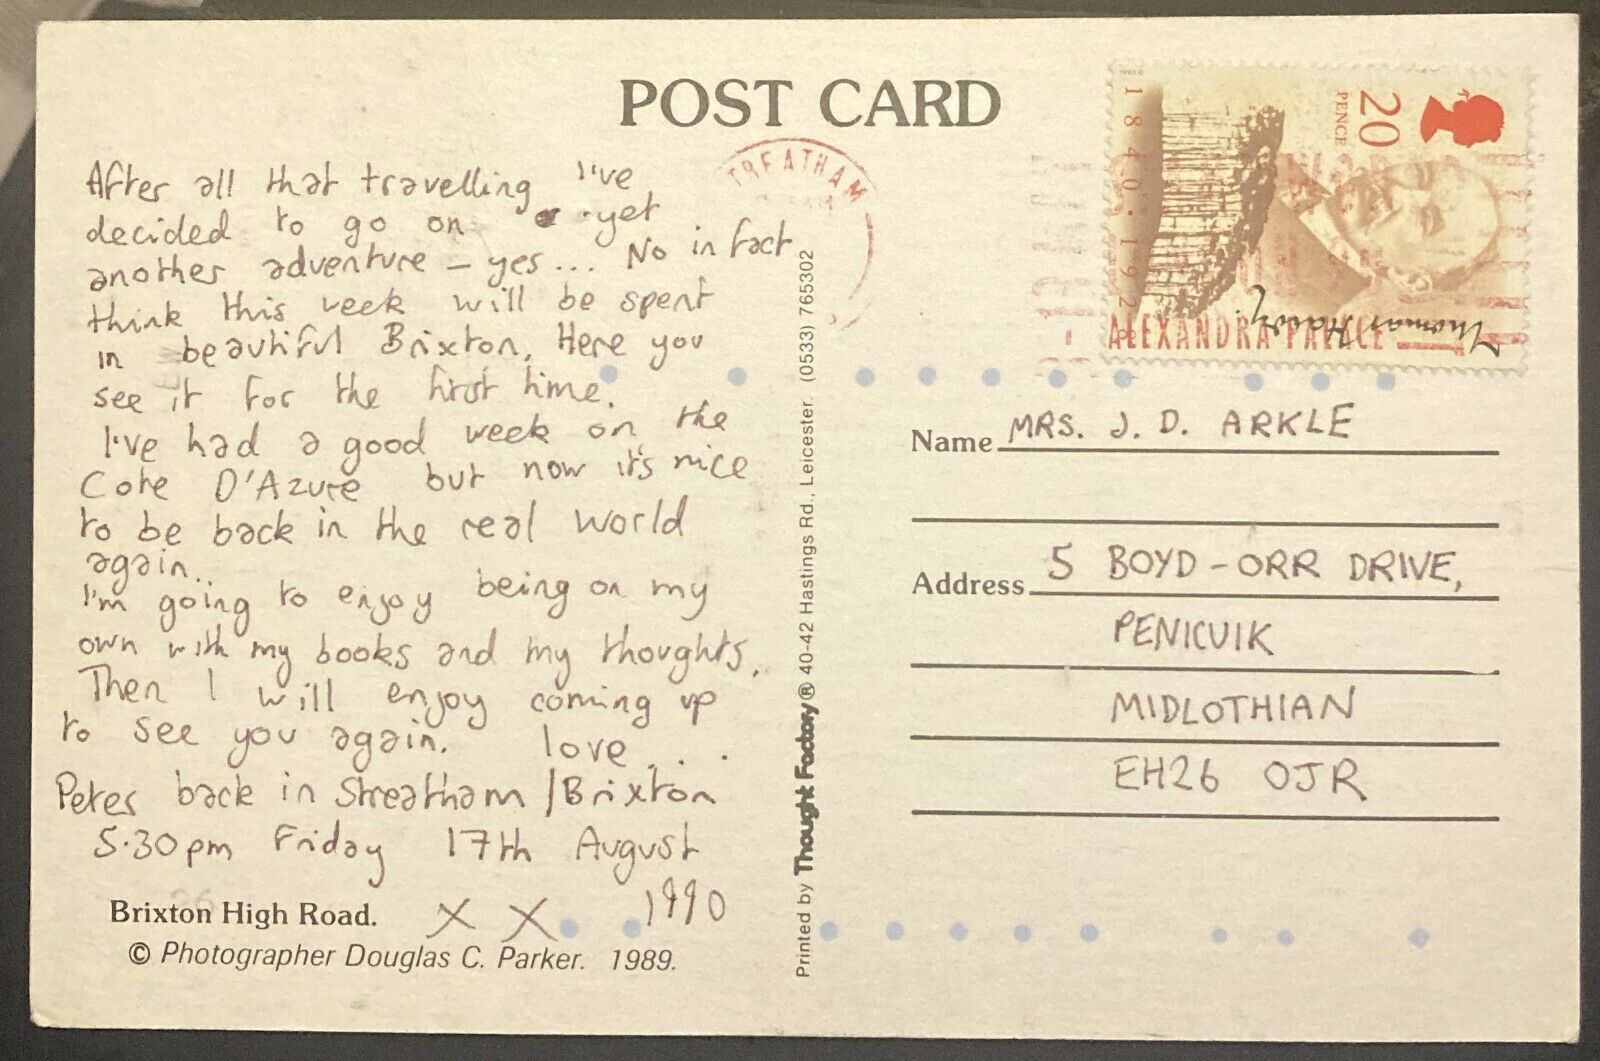 POST CARD
After all that travelling I've
decided to go on yet
another adventure – yes... No in fact
think this week will be spent
in beautiful Brixton. Here you
see it for the first time.
I've had a good week on the
Cote D'Azure but now it's nice
to be back in the real world
again..
I'm going to enjoy being on my
own with my books and my thoughts.
Then I will enjoy coming up
to see you again. love . . .
Peter back in Streatham / Brixton
5.30pm Friday 17th August
1990
X X
Brixton High Road.
© Photographer Douglas C. Parker. 1989.
Printed by Thought Factory® 40-42 Hastings Rd., Leicester. (0533) 765302
STREATHAM
20
PENCE
1840·1928
Thomas Hardy.
ALEXANDRA PALACE
Name MRS. J. D. ARKLE
Address 5 BOYD-ORR DRIVE,
PENICUIK
MIDLOTHIAN
EH26 OJR